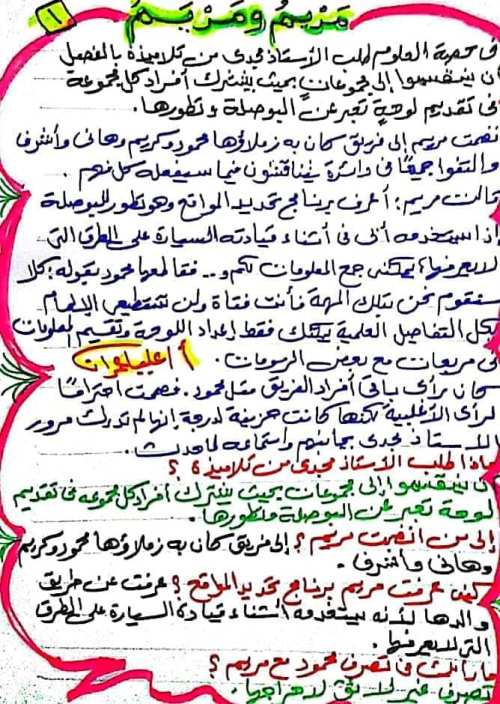 ١
مَرْيَمُ ومَرْيَمُ
فى حصة العلوم طلب الأستاذ مجدى من تلاميذه بالفصل
أن ينقسموا إلى مجموعات بحيث يشترك أفراد كل مجموعة
فى تقديم لوحةٍ تعبر عن البوصلة وتطورها.
انضمت مريم إلى فريق كان به زملاؤها محمود وكريم وهانى وأشرف
والتفوا جميعًا فى دائرة يتناقشون فيما سيفعله كل منهم.
قالت مريم: أعرف برنامج تحديد المواقع وهو تطور للبوصلة
إذ استخدمه أبى فى أثناء قيادته السيارة على الطرق التى
لا يعرفها، يمكننى جمع المعلومات لكم و.. فقالها محمود بقوله: كلا
سنقوم نحن بتلك المهمة فأنت فتاة ولن تستطيعى الإلمام
بكل التفاصيل العلمية يمكنك فقط إعداد اللوحة وتقسيم المعلومات
فى مربعات مع بعض الرسومات.
كان رأى باقى أفراد الفريق مثل محمود. فصمتت احترامًا
لرأى الأغلبية لكنها كانت حزينة لدرجة إنها لم تدرك مرور
الأستاذ مجدى بجانبهم واستماعه لما حدث.
ماذا طلب الأستاذ مجدى من تلاميذه ؟
أن ينقسموا إلى مجموعات بحيث يشترك أفراد كل مجموعه فى تقديم
لوحة تعبر عن البوصلة وتطورها.
إلى من انضمت مريم ؟ إلى فريق كان به زملاؤها محمود وكريم
وهانى وأشرف.
كيف عرفت مريم برنامج تحديد المواقع ؟ عرفت عن طريق
والدها لأنه يستخدمه أثناء قيادة السيارة على الطرق
التى لا يعرفها.
ما رأيك فى تصرف محمود مع مريم ؟
تصرف غير لائق لأنه أحرجها.